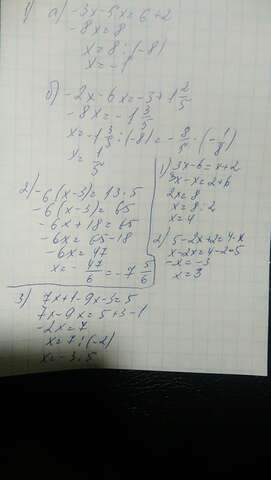 1) а) -3x-5x=6+2
-8x=8
x=8:(-8)
x=-1
б) -2x-6x=-3+1 2/5
-8x=-1 3/5
x=-1 3/5:(-8)=-8/5·(-1/8)
x=1/5
2) -6(x-3)=13·5
-6(x-3)=65
-6x+18=65
-6x=65-18
-6x=47
x=-47/6=-7 5/6
1) 3x-6=x+2
3x-x=2+6
2x=8
x=8:2
x=4
2) 5-2x+2=4-x
x-2x=4-2-5
-x=-3
x=3
3) 7x+1-9x-3=5
7x-9x=5+3-1
-2x=7
x=7:(-2)
x=-3.5